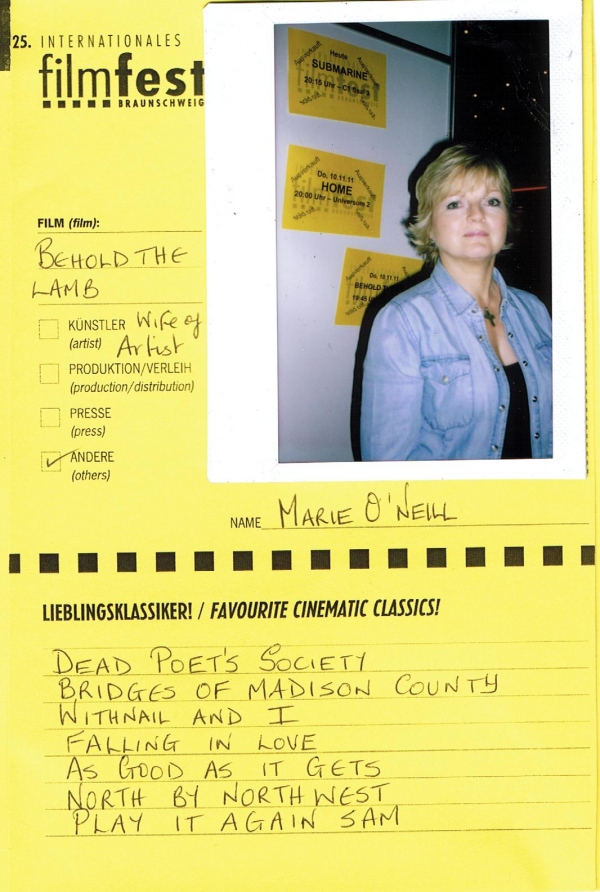 25. INTERNATIONALES
filmfest
BRAUNSCHWEIG
Heute
SUBMARINE
Do, 10.11.11
HOME
20:00 Uhr – Universum 2
Do, 10.11.11
BEHOLD
19:45
FILM (film):
BEHOLD THE
LAMB
KÜNSTLER Wife of
(artist) Artist
PRODUKTION/VERLEIH
(production/distribution)
PRESSE
(press)
ANDERE
(others)
NAME MARIE O'NEILL
LIEBLINGSKLASSIKER! / FAVOURITE CINEMATIC CLASSICS!
DEAD POET'S SOCIETY
BRIDGES OF MADISON COUNTY
WITHNAIL AND I
FALLING IN LOVE
AS GOOD AS IT GETS
NORTH BY NORTHWEST
PLAY IT AGAIN SAM